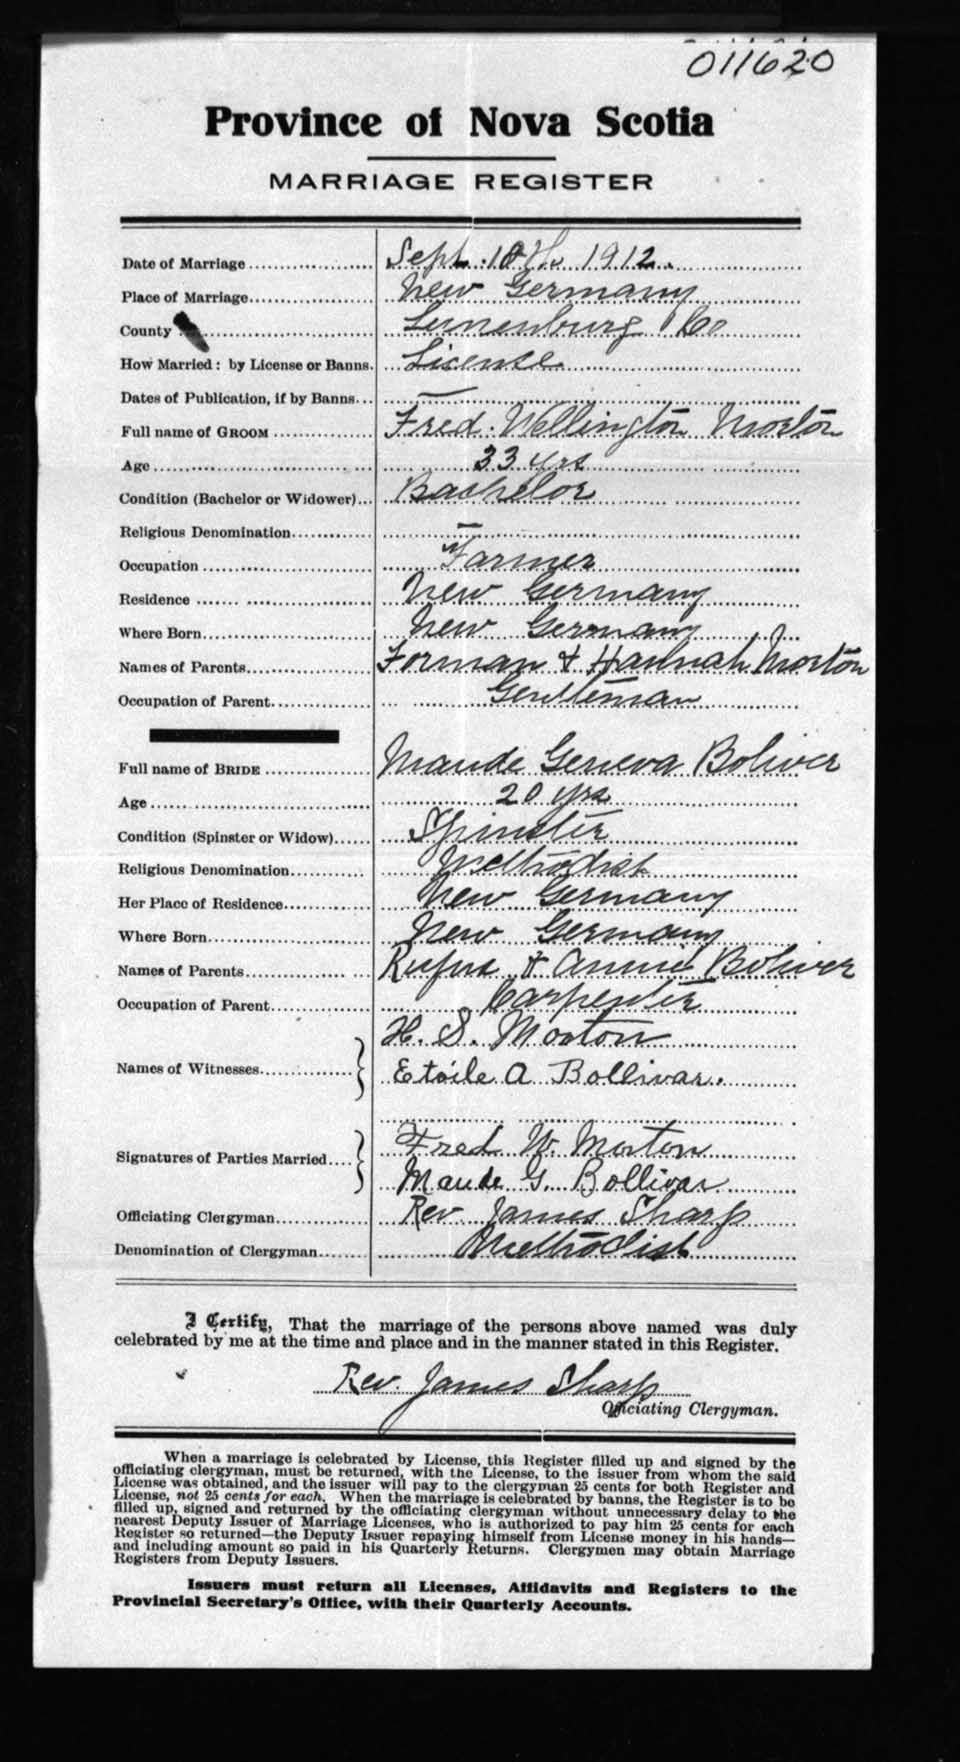 011620
Province of Nova Scotia
MARRIAGE REGISTER
Date of Marriage Sept. 18th 1912.
Place of Marriage New Germany
County Lunenburg Co
How Married: by License or Banns. License
Dates of Publication, if by Banns... —
Full name of GROOM Fred. Wellington Morton
Age 33 yrs
Condition (Bachelor or Widower)... Bachelor
Religious Denomination —
Occupation Farmer
Residence New Germany
Where Born New Germany
Names of Parents Forman & Hannah Morton
Occupation of Parent Gentleman
Full name of BRIDE Maude Geneva Boliver
Age 20 yrs
Condition (Spinster or Widow) Spinster
Religious Denomination Methodist
Her Place of Residence New Germany
Where Born New Germany
Names of Parents Rufus & Annie Boliver
Occupation of Parent Carpenter
H. S. Morton
Names of Witnesses Etoile A Bollivar.
Fred W. Morton
Signatures of Parties Married
Maude G. Bollivar
Officiating Clergyman Rev James Sharp
Denomination of Clergyman Methodist
I Certify, That the marriage of the persons above named was duly
celebrated by me at the time and place and in the manner stated in this Register.
Rev. James Sharp
Officiating Clergyman.
When a marriage is celebrated by License, this Register filled up and signed by the
officiating clergyman, must be returned, with the License, to the issuer from whom the said
License was obtained, and the issuer will pay to the clergyman 25 cents for both Register and
License, not 25 cents for each. When the marriage is celebrated by banns, the Register is to be
filled up, signed and returned by the officiating clergyman without unnecessary delay to the
nearest Deputy Issuer of Marriage Licenses, who is authorized to pay him 25 cents for each
Register so returned—the Deputy Issuer repaying himself from License money in his hands—
and including amount so paid in his Quarterly Returns. Clergymen may obtain Marriage
Registers from Deputy Issuers.
Issuers must return all Licenses, Affidavits and Registers to the
Provincial Secretary's Office, with their Quarterly Accounts.